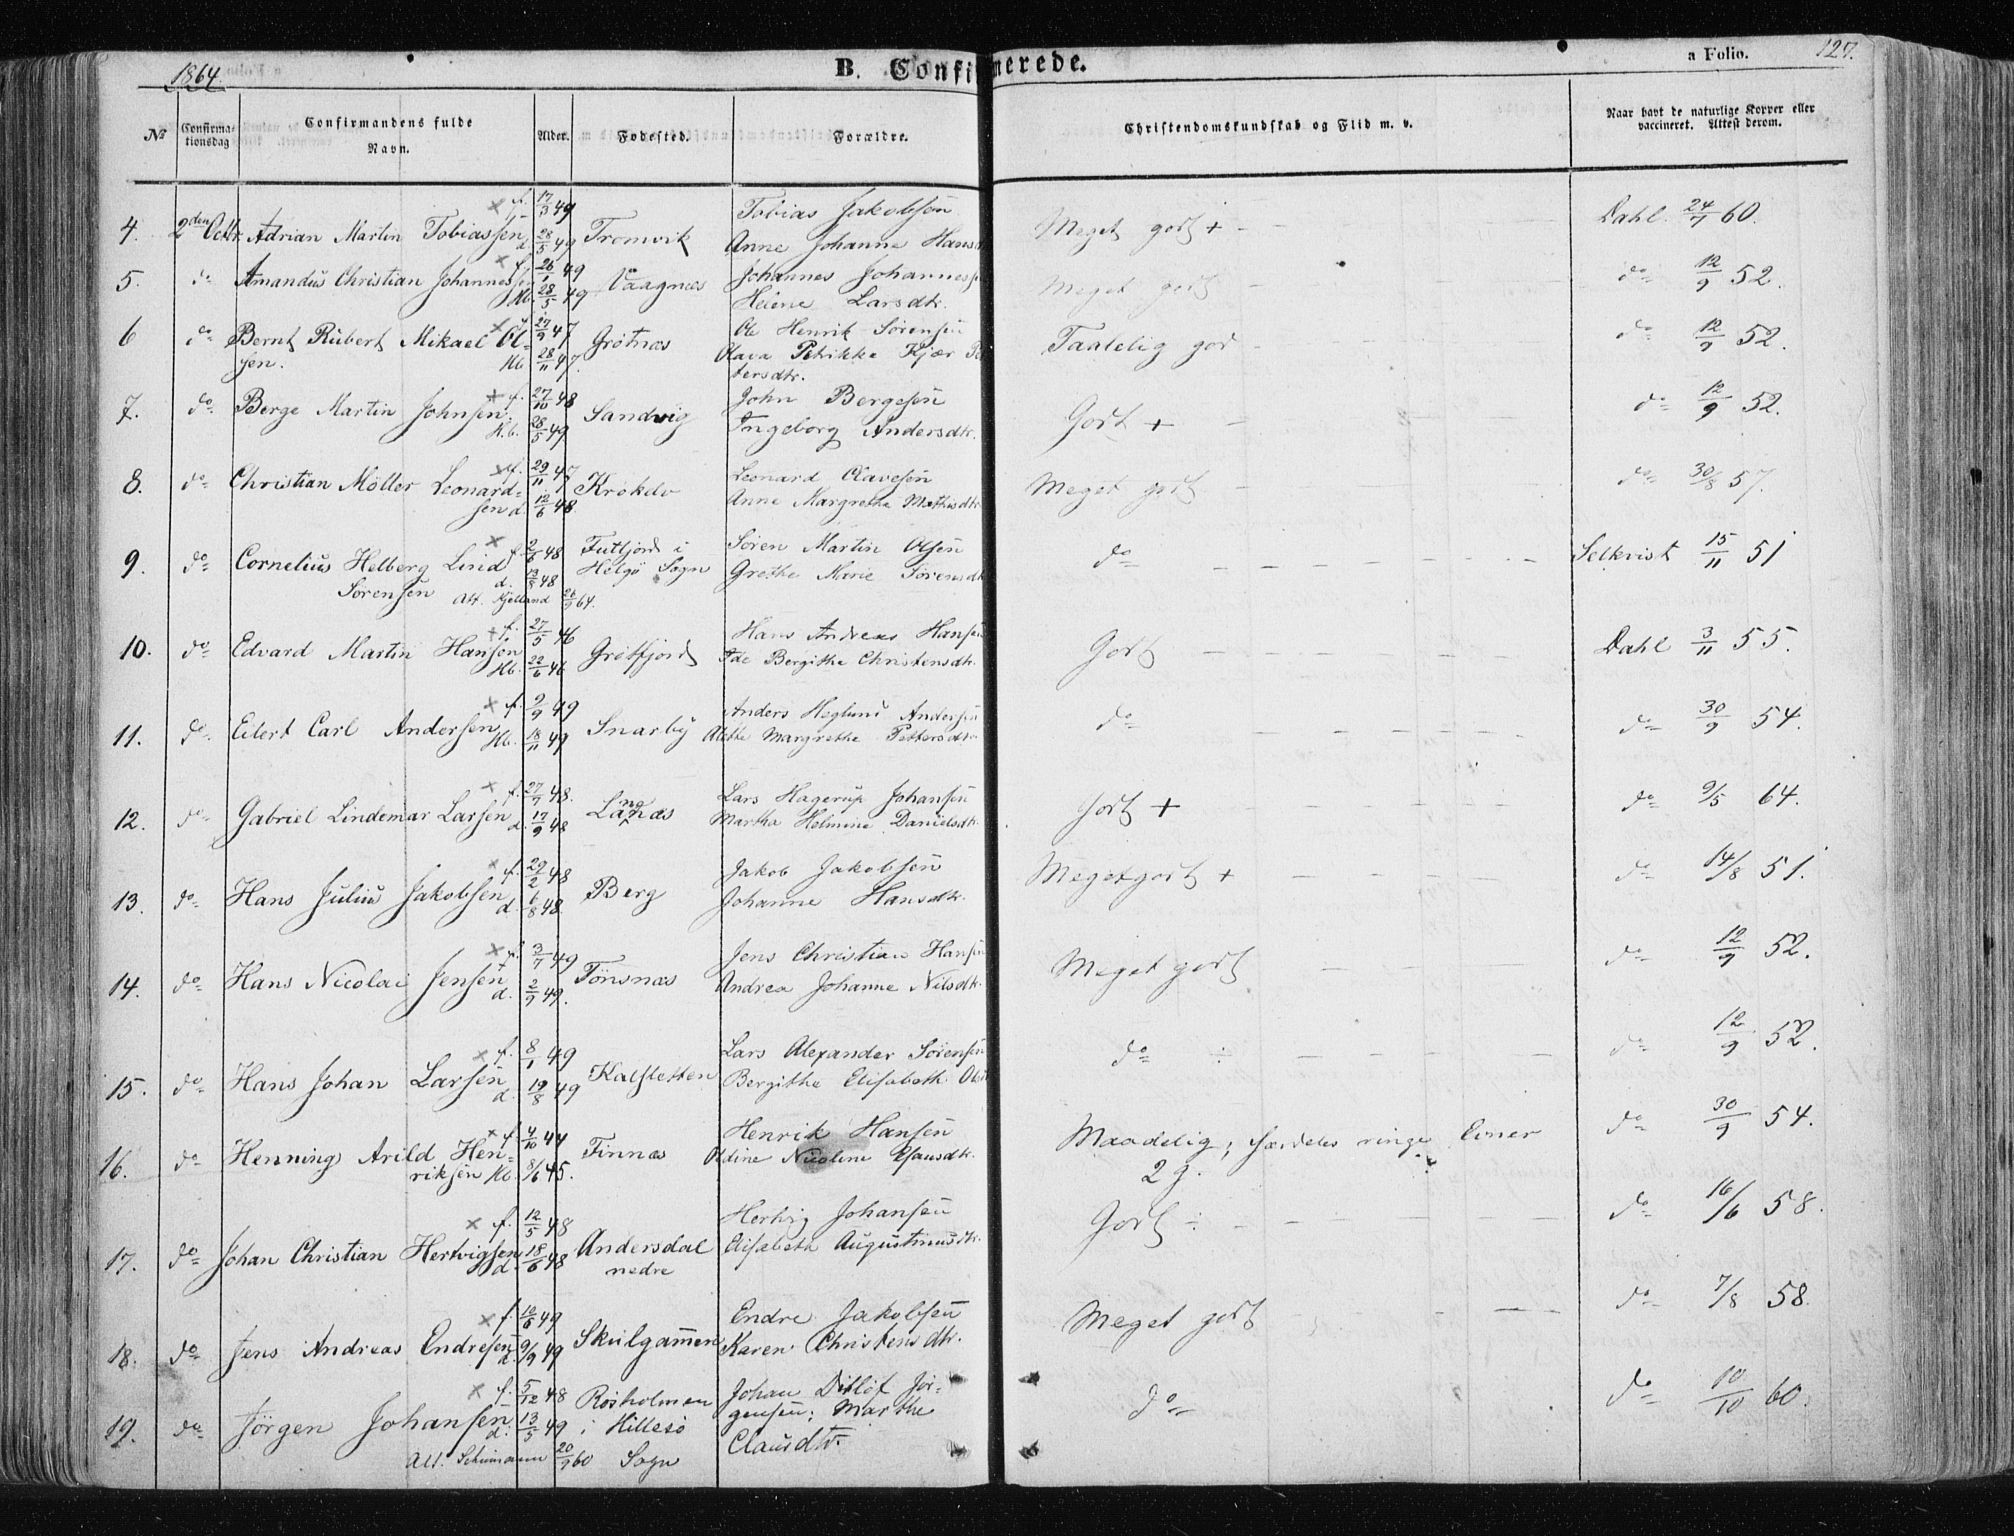 1864.
B. Confirmerede.
a Folio. 127.
No Confirmationsdag Confirmandens fulde Navn. Alder. Fødested. Forældre. Christendomskundskab og Flid m. v. Naar havt de naturlige Kopper eller vaccineret. Attest derom.
× f. 17/3 49 Tobias Jakobsen
4. 2den Octbr. Adrian Martin Tobiassen d. 28/5 49 Tromvik Anne Johanne Hansd Meget godt + Dahl 24/7 60.
× f. 26/1 49 Johannes Johannes
5. do Amandus Christian Johannes Hb. 28/5 49 Vaagnæs Helene Larsdtr. Meget godt do 12/9 52.
6 do Bernt Rubert Mikael Ol- × f. 27/9 47 Grötnæs Ole Henrik Sörensen Taalelig god do 12/9 52.
sen. Hb. 28/11 47. Olava Petrikke Kjær Pe
tersdtr.
7. do Berge Martin Johnsen × f. 27/10 48 Sandvig John Bergesen Godt + do 12/9 52.
H.b. 28/5 49 Ingeborg Andersdtr.
8. do Christian Möller Leonard- × f. 29/11 47 Krokelv Leonard Olavesen Meget godt do 30/8 57.
sen d. 12/6 48 Anne Margrethe Mathisdtr
9. do Cornelius Helberg Lind × f. 2/6 48 Futtjord i Sören Martin Olsen do Selkvist 15/11 51
Sörensen d. 13/8 48 Helgö Sogn Grethe Marie Sörensdt
Att. Kjelland 26/9 64.
10. do Edvard Martin Hansen × f. 27/5 46 Grötfjord Hans Andreas Hansen Godt Dahl 3/11 55.
Hb. 22/6 46 Ide Bergithe Christensdtr.
11. do Eilert Carl Andersen × f. 9/9 49 Snarby Anders Heglund Andersen do do 30/9 54.
Hb. 18/11 49 Alette Margrethe Pettersdtr
12. do Gabriel Lindemar Larsen × f. 27/7 48. Langnæs Lars Hagerup Johansen Godt + do 9/5 64.
d. 17/9 48 Martha Helmine Danielsdtr.
13. do Hans Julius Jakobsen × f. 29/2 48 Berg Jakob Jakobsen Meget godt + do 14/8 51.
d. 6/8 48. Johanne Hansdtr.
14. do Hans Nicolai Jensen × f. 3/7 49 Tönsnæs Jens Christian Hansen Meget godt do 12/9 52.
d. 2/9 49. Andrea Johanne Nilsdtr.
15. do Hans Johan Larsen × f. 8/1 49 Kalsletten Lars Alexander Sörensen do ÷ do 12/9 52.
d. 19/8 49 Bergithe Elisabeth Ols
16. do Henning Arild Hen- × f. 4/10 44 Finnæs Henrik Hansen Maadelig; særdeles ringe Evner do 30/9 54.
riksen Hb. 8/6 45. Oldine Nicoline Hansdtr. 2 g.
17. do Johan Christian Hertvigsen × f. 12/5 48 Andersdal Hertvig Johansen Godt ÷ do 16/6 58.
d. 18/6 48 nedre Elisabeth Augustinusdtr.
18. do Jens Andreas Endresen × f. 10/6 49 Skulgammen Endre Jakobsen Meget godt do 7/8 58.
d. 9/9 49 Karen Christensdtr.
19. do Jörgen Johansen × f. 5/12 48 Rösholmen Johan Ditlöf Jör- do do 10/10 60.
d. 13/5 49 i Hillesö gensen; Marthe
Att. Schumann 20/9 60 Sogn Clausdtr.